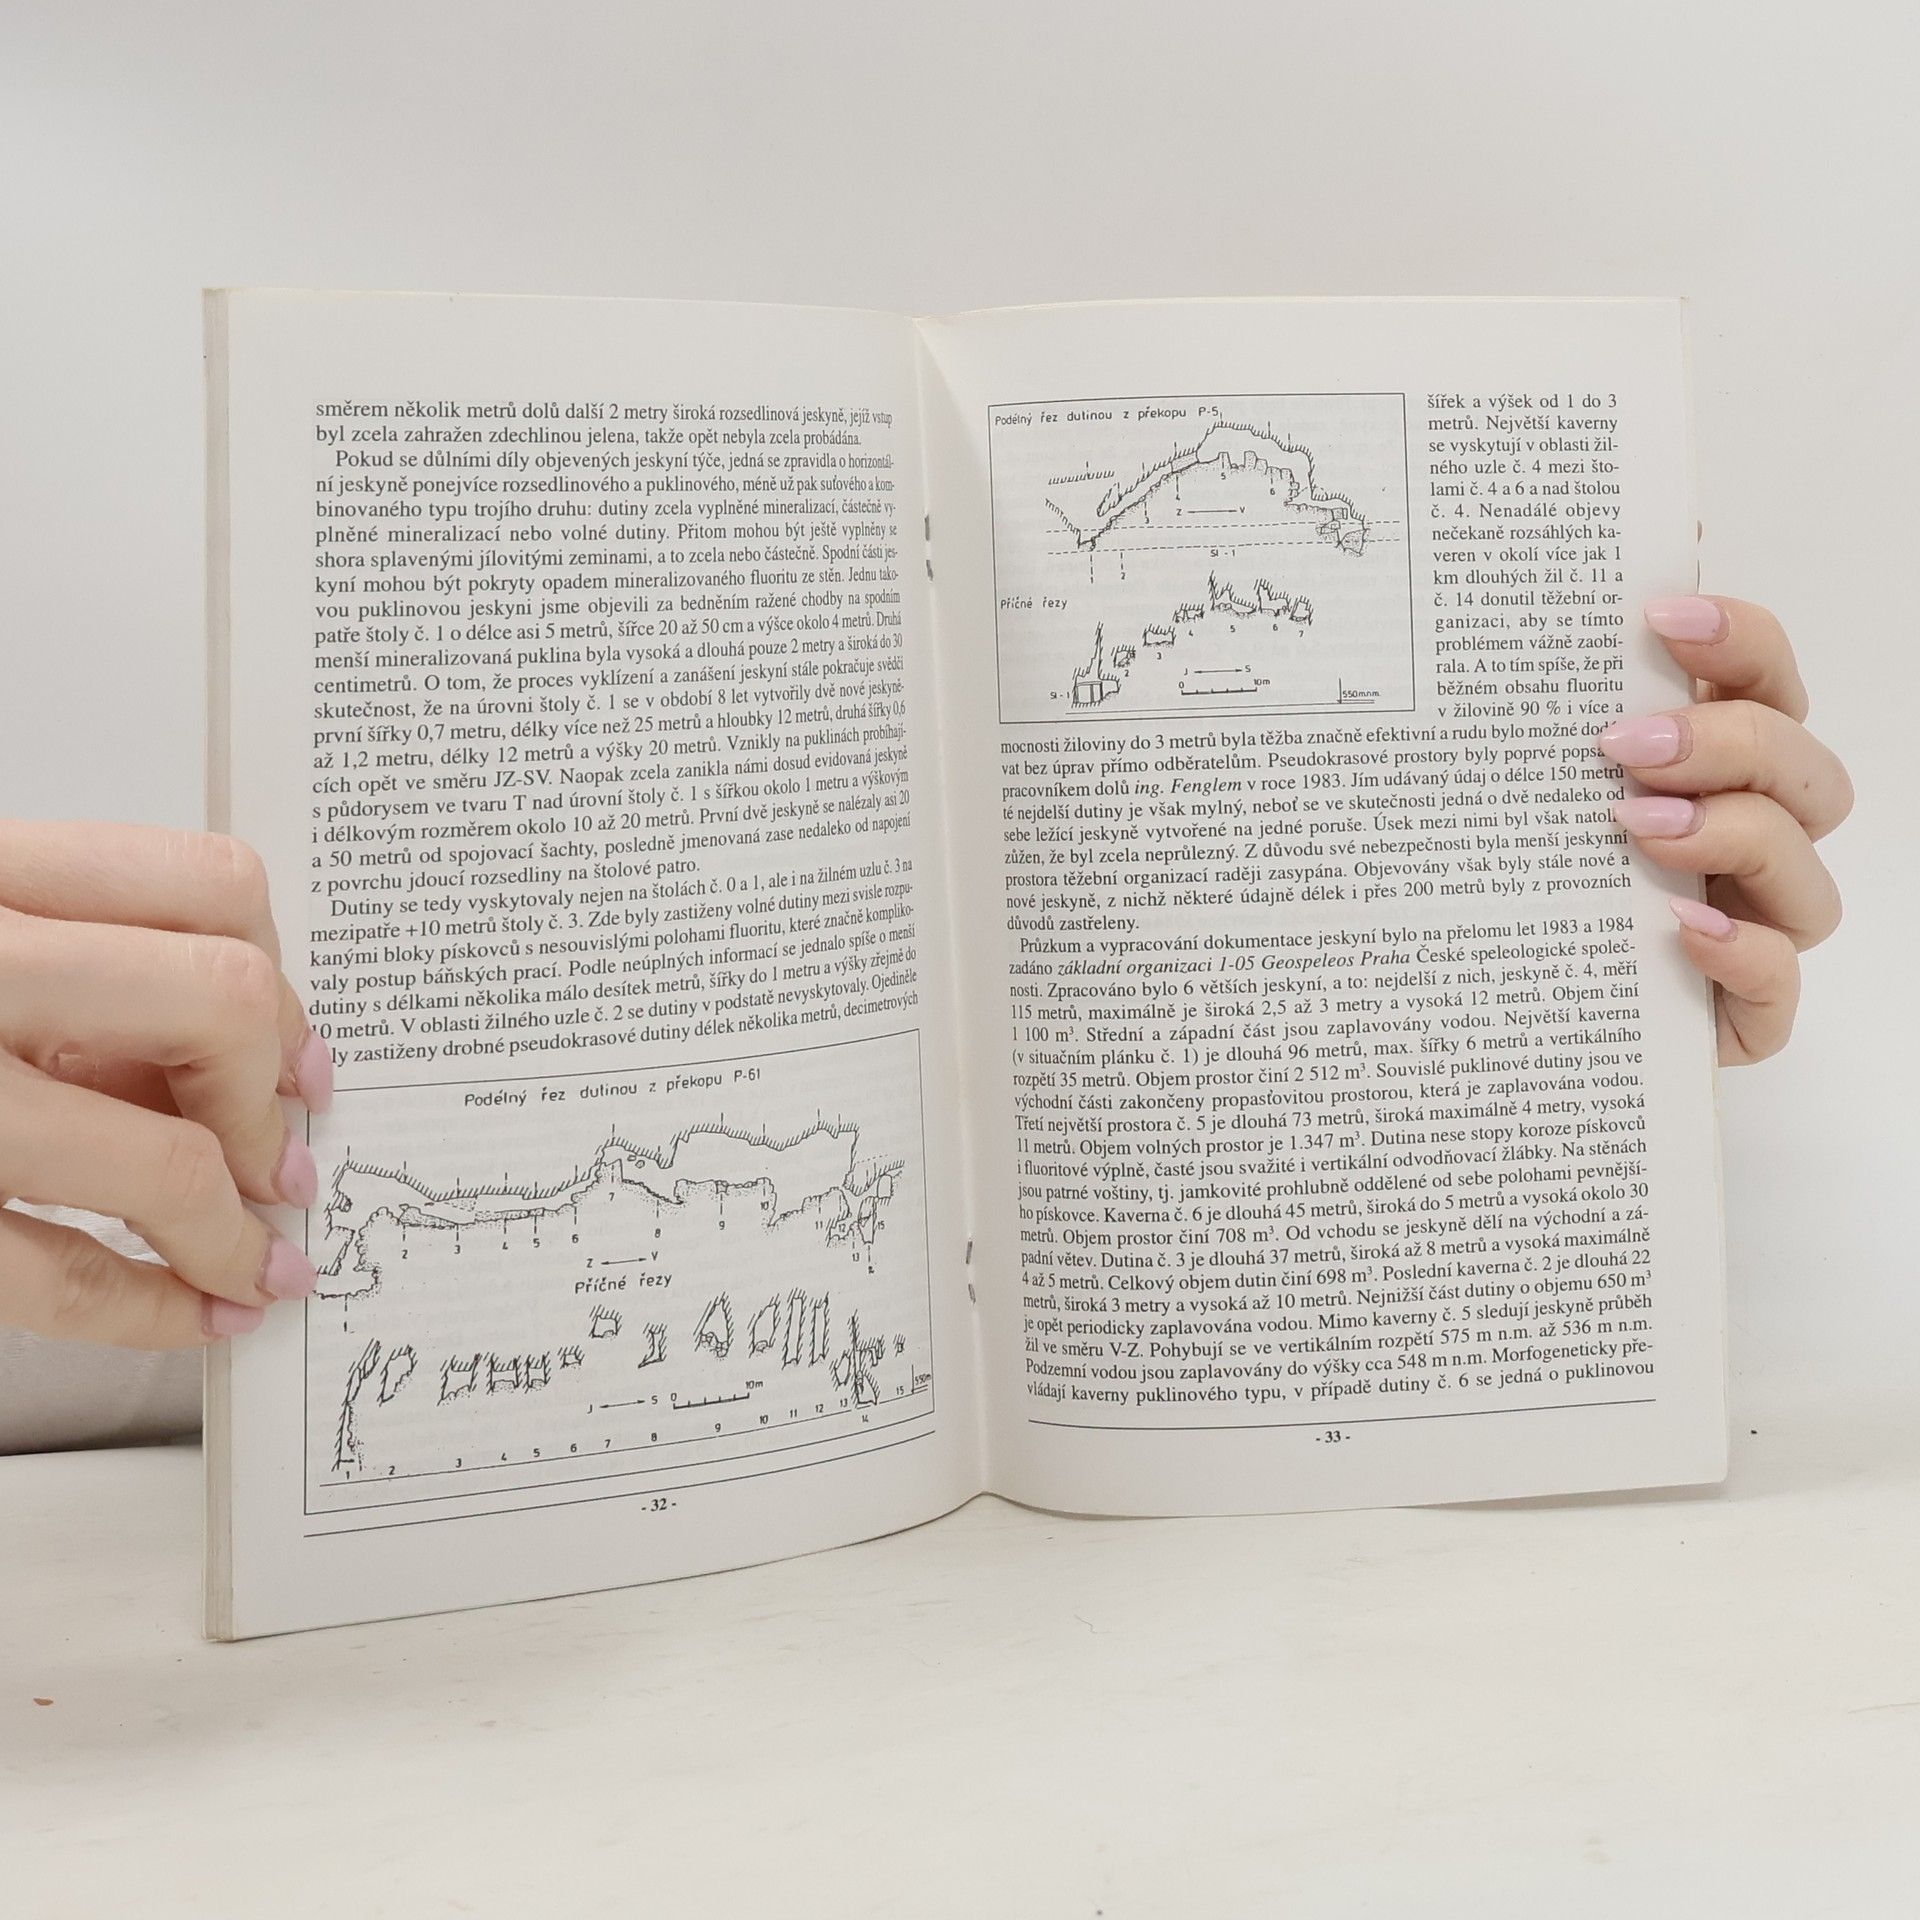 směrem několik metrů dolů další 2 metry široká rozsedlinová jeskyně, jejíž vstup
byl zcela zahražen zdechlinou jelena, takže opět nebyla zcela probádána.
Pokud se důlními díly objevených jeskyní týče, jedná se zpravidla o horizontál-
ní jeskyně ponejvíce rozsedlinového a puklinového, méně už pak suťového a kom-
binovaného typu trojího druhu: dutiny zcela vyplněné mineralizací, částečně vy-
plněné mineralizací nebo volné dutiny. Přitom mohou být ještě vyplněny se
shora splavenými jílovitými zeminami, a to zcela nebo částečně. Spodní části jes-
kyní mohou být pokryty opadem mineralizovaného fluoritu ze stěn. Jednu tako-
vou puklinovou jeskyni jsme objevili za bedněním ražené chodby na spodním
patře štoly č. 1 o délce asi 5 metrů, šířce 20 až 50 cm a výšce okolo 4 metrů. Druhá
menší mineralizovaná puklina byla vysoká a dlouhá pouze 2 metry a široká do 30
centimetrů. O tom, že proces vyklízení a zanášení jeskyní stále pokračuje svědčí
skutečnost, že na úrovni štoly č. 1 se v období 8 let vytvořily dvě nové jeskyně-
první šířky 0,7 metru, délky více než 25 metrů a hloubky 12 metrů, druhá šířky 0,6
až 1,2 metru, délky 12 metrů a výšky 20 metrů. Vznikly na puklinách probíhají-
cích opět ve směru JZ-SV. Naopak zcela zanikla námi dosud evidovaná jeskyně
s půdorysem ve tvaru T nad úrovní štoly č. 1 s šířkou okolo 1 metru a výškovým
i délkovým rozměrem okolo 10 až 20 metrů. První dvě jeskyně se nalézaly asi 20
a 50 metrů od spojovací šachty, posledně jmenovaná zase nedaleko od napojení
z povrchu jdoucí rozsedliny na štolové patro.
Dutiny se tedy vyskytovaly nejen na štolách č. 0 a 1, ale i na žilném uzlu č. 3 na
mezipatře +10 metrů štoly č. 3. Zde byly zastiženy volné dutiny mezi svisle rozpu-
kanými bloky pískovců s nesouvislými polohami fluoritu, které značně kompliko-
valy postup báňských prací. Podle neúplných informací se jednalo spíše o menší
dutiny s délkami několika málo desítek metrů, šířky do 1 metru a výšky zřejmě do
10 metrů. V oblasti žilného uzle č. 2 se dutiny v podstatě nevyskytovaly. Ojediněle
ly zastiženy drobné pseudokrasové dutiny délek několika metrů, decimetrových
Podélný řez dutinou z překopu P-61
1 2 3 4 5 6 7 8 9 10 11 12 13 15
Z V
Příčné řezy
J S 0 10m
550m
1 2 3 4 5 6 7 8 9 10 11 12 13 14 15
- 32 -
Podélný řez dutinou z překopu P-5
1 2 3 4 5 6
Z V
Sl - 1
Příčné řezy
Sl - 1 2 3 4 5 6 7
J S
0 10m
550m.n.m.
šířek a výšek od 1 do 3
metrů. Největší kaverny
se vyskytují v oblasti žil-
ného uzle č. 4 mezi što-
lami č. 4 a 6 a nad štolou
č. 4. Nenadálé objevy
nečekaně rozsáhlých ka-
veren v okolí více jak 1
km dlouhých žil č. 11 a
č. 14 donutil těžební or-
ganizaci, aby se tímto
problémem vážně zaobí-
rala. A to tím spíše, že při
běžném obsahu fluoritu
v žilovině 90 % i více a
mocnosti žiloviny do 3 metrů byla těžba značně efektivní a rudu bylo možné
vat bez úprav přímo odběratelům. Pseudokrasové prostory byly poprvé
pracovníkem dolů ing. Fenglem v roce 1983. Jím udávaný údaj o délce 150 metrů
té nejdelší dutiny je však mylný, neboť se ve skutečnosti jedná o dvě nedaleko od
sebe ležící jeskyně vytvořené na jedné poruše. Úsek mezi nimi byl však
zúžen, že byl zcela neprůlezný. Z důvodu své nebezpečnosti byla menší jeskynní
prostora těžební organizací raději zasypána. Objevovány však byly stále nové a
nové jeskyně, z nichž některé údajně délek i přes 200 metrů byly z provozních
důvodů zastřeleny.
Průzkum a vypracování dokumentace jeskyní bylo na přelomu let 1983 a 1984
zadáno základní organizaci 1-05 Geospeleos Praha České speleologické společ-
nosti. Zpracováno bylo 6 větších jeskyní, a to: nejdelší z nich, jeskyně č. 4, měří
115 metrů, maximálně je široká 2,5 až 3 metry a vysoká 12 metrů. Objem činí
1 100 m³. Střední a západní část jsou zaplavovány vodou. Největší kaverna
(v situačním plánku č. 1) je dlouhá 96 metrů, max. šířky 6 metrů a vertikálního
rozpětí 35 metrů. Objem prostor činí 2 512 m³. Souvislé puklinové dutiny jsou ve
východní části zakončeny propasťovitou prostorou, která je zaplavována vodou.
Třetí největší prostora č. 5 je dlouhá 73 metrů, široká maximálně 4 metry, vysoká
11 metrů. Objem volných prostor je 1.347 m³. Dutina nese stopy koroze pískovců
i fluoritové výplně, časté jsou svažité i vertikální odvodňovací žlábky. Na stěnách
jsou patrné voštiny, tj. jamkovité prohlubně oddělené od sebe polohami pevnější-
ho pískovce. Kaverna č. 6 je dlouhá 45 metrů, široká do 5 metrů a vysoká okolo 30
metrů. Objem prostor činí 708 m³. Od vchodu se jeskyně dělí na východní a zá-
padní větev. Dutina č. 3 je dlouhá 37 metrů, široká až 8 metrů a vysoká maximálně
4 až 5 metrů. Celkový objem dutin činí 698 m³. Poslední kaverna č. 2 je dlouhá 22
metrů, široká 3 metry a vysoká až 10 metrů. Nejnižší část dutiny o objemu 650 m³
je opět periodicky zaplavována vodou. Mimo kaverny č. 5 sledují jeskyně průběh
žil ve směru V-Z. Pohybují se ve vertikálním rozpětí 575 m n.m. až 536 m n.m.
Podzemní vodou jsou zaplavovány do výšky cca 548 m n.m. Morfogeneticky pře-
vládají kaverny puklinového typu, v případě dutiny č. 6 se jedná o puklinovou
- 33 -